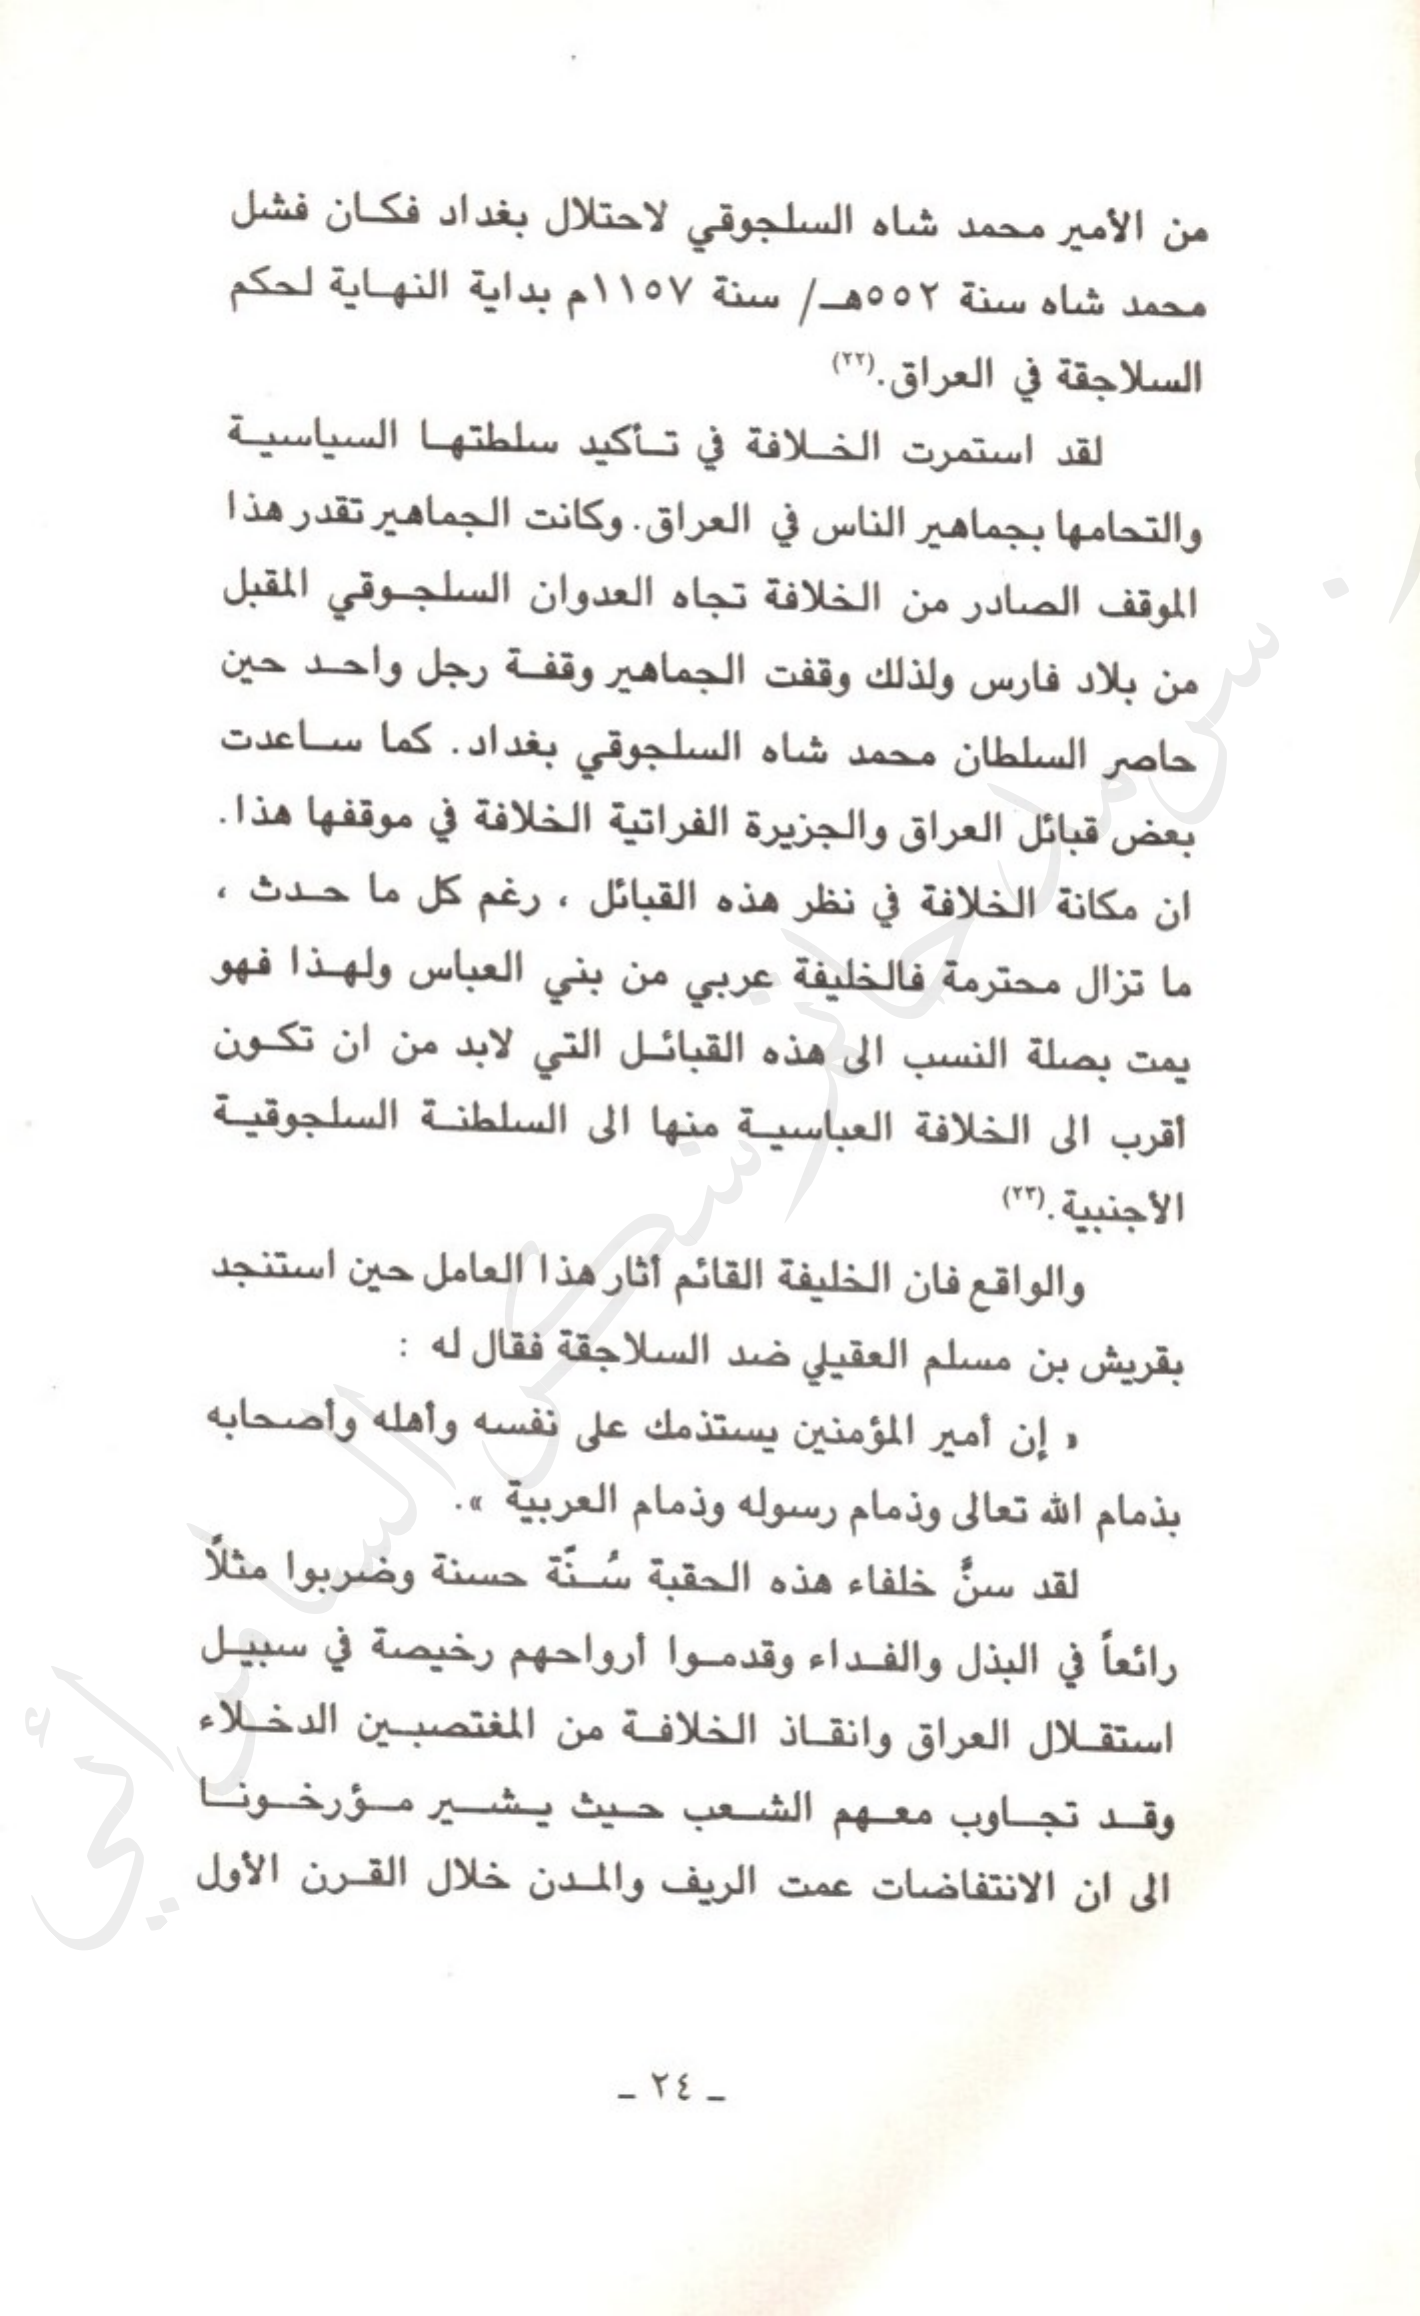 من الأمير محمد شاه السلجوقي لاحتلال بغداد فكان فشل
محمد شاه سنة ٥٥٢هـ/ سنة ١١٥٧م بداية النهاية لحكم
السلاجقة في العراق.(٢٢)
لقد استمرت الخلافة في تأكيد سلطتها السياسية
والتحامها بجماهير الناس في العراق. وكانت الجماهير تقدر هذا
الموقف الصادر من الخلافة تجاه العدوان السلجوقي المقبل
من بلاد فارس ولذلك وقفت الجماهير وقفة رجل واحد حين
حاصر السلطان محمد شاه السلجوقي بغداد. كما ساعدت
بعض قبائل العراق والجزيرة الفراتية الخلافة في موقفها هذا.
ان مكانة الخلافة في نظر هذه القبائل ، رغم كل ما حدث ،
ما تزال محترمة فالخليفة عربي من بني العباس ولهذا فهو
يمت بصلة النسب الى هذه القبائل التي لابد من ان تكون
أقرب الى الخلافة العباسية منها الى السلطنة السلجوقية
الأجنبية.(٢٣)
والواقع فان الخليفة القائم أثار هذا العامل حين استنجد
بقريش بن مسلم العقيلي ضد السلاجقة فقال له :
« إن أمير المؤمنين يستذمك على نفسه وأهله وأصحابه
بذمام الله تعالى وذمام رسوله وذمام العربية ».
لقد سنَّ خلفاء هذه الحقبة سُنّة حسنة وضربوا مثلاً
رائعاً في البذل والفداء وقدموا أرواحهم رخيصة في سبيل
استقلال العراق وانقاذ الخلافة من المغتصبين الدخلاء
وقد تجاوب معهم الشعب حيث يشير مؤرخونا
الى ان الانتفاضات عمت الريف والمدن خلال القرن الأول
ـ ٢٤ ـ